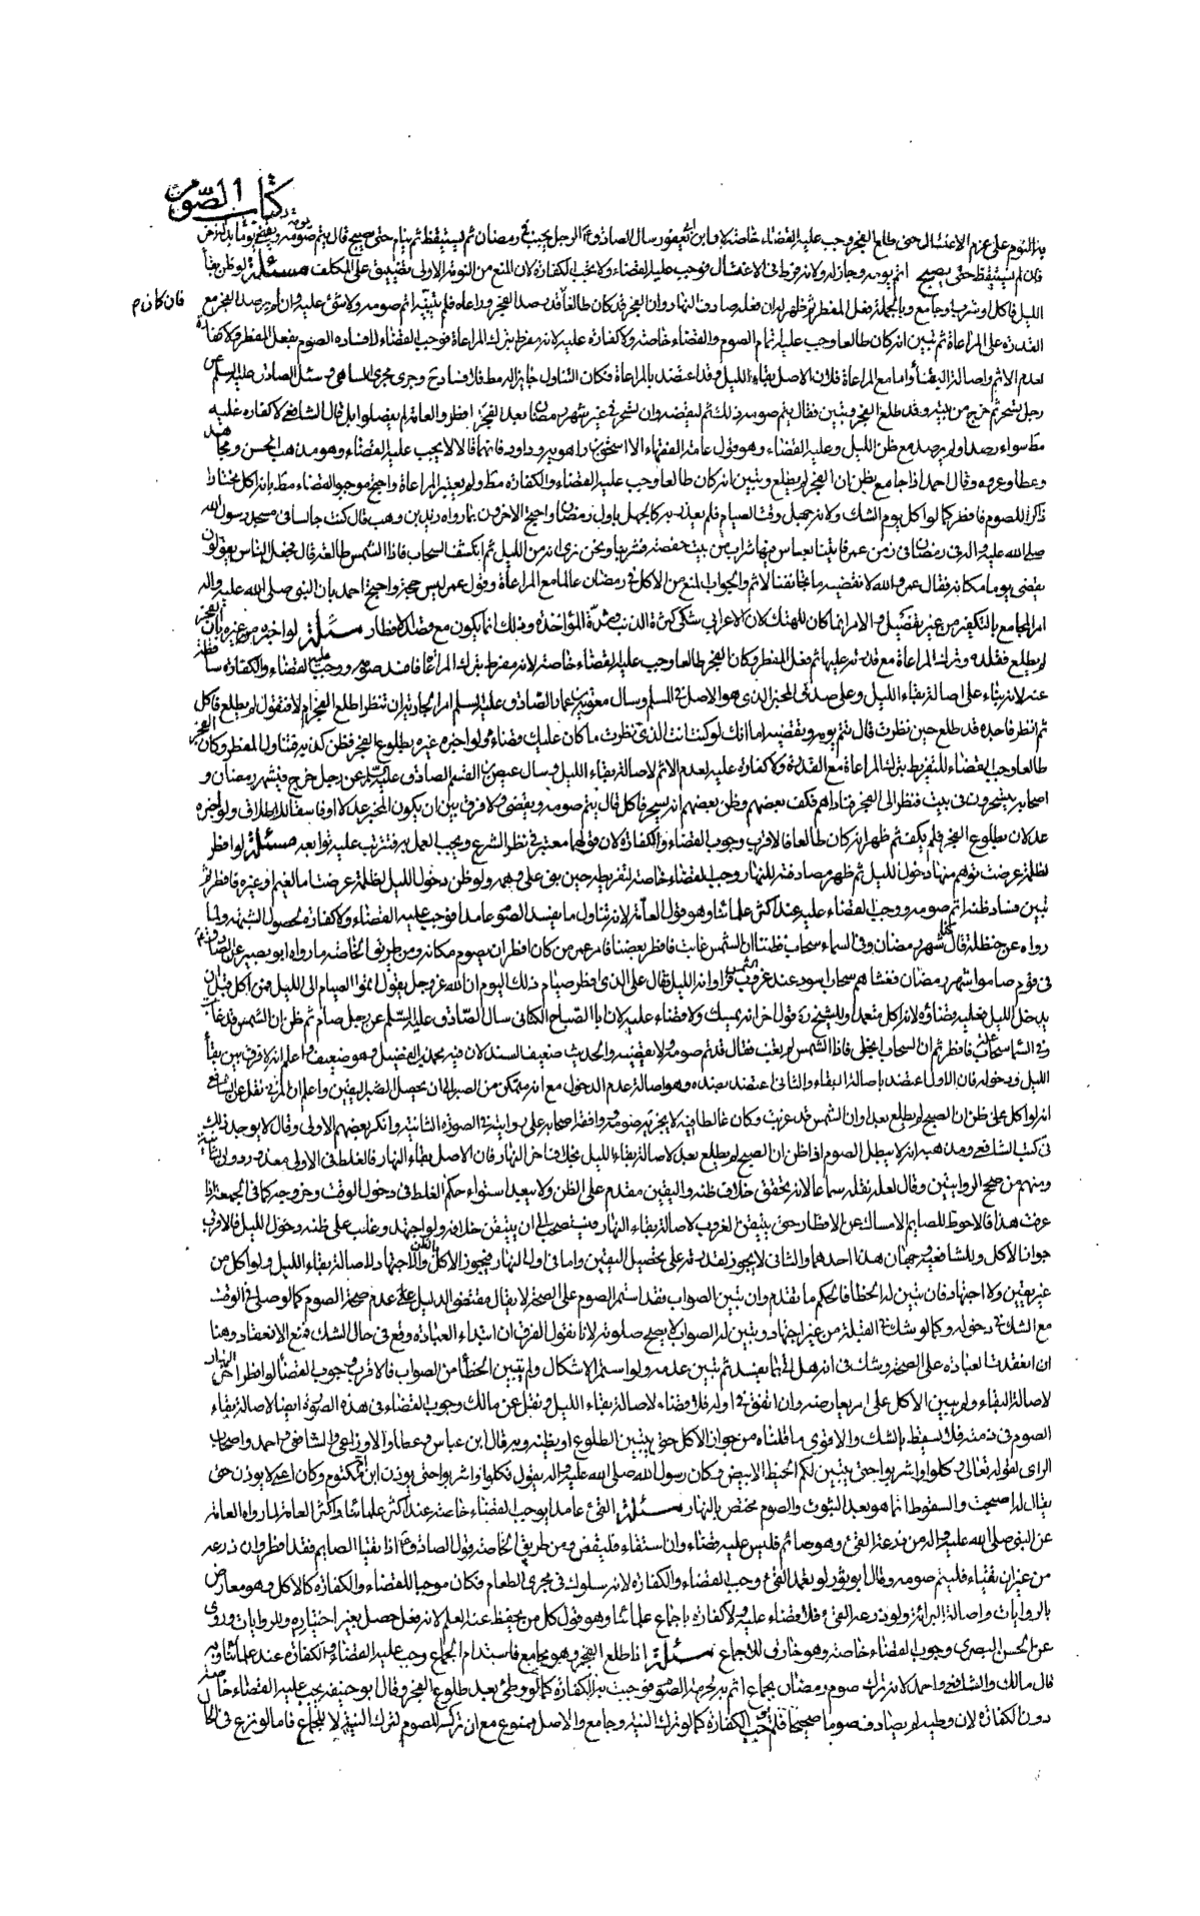 كتاب الصوم
بد النوم على عزم الاغتسال حتى طلع الفجر وجب عليه القضاء خاصة لما وابن ابي يعفور سال الصادق ع الرجل يجنب في رمضان ثم يستيقظ ثم ينام حتى يصبح قال يتم صومه ويقضي يوما بدله
فان لم يستيقظ حتى يصبح اتم يومه وجاز له ولانه فرط في الاغتسال فوجب عليه القضاء ولا يجب الكفارة لان المنع من النومة الاولى تضييق على المكلف مسئلة لو ظن بقاء
الليل فاكل او شرب او جامع وبالجملة فعل المفطر ثم ظهر له ان فعله صادف النهار وان الفجر قد كان طالعا قد رصد الفجر وراعاه فلم يتيقنه اتم صومه ولا شئ عليه وان لم يرصد الفجر مع
فان كان م
القدرة على المراعاة ثم تبين انه كان طالعا وجب عليه اتمام الصوم والقضاء خاصة ولا كفارة عليه لانه مفرط بترك المراعاة فوجب القضاء لافساده الصوم بفعل المفطر ولا كفارة
لعدم الاثم واصالة البقاء واما مع المراعاة فلان الاصل بقاء الليل وقد اعتضد بالمراعاة فكان التناول جايزا له مطلقا فلا فساد ح وجرى مجرى الساهي وسئل الصادق عليه السلم عن
رجل تسحر ثم خرج من بيته وقد طلع الفجر وتبين فقال يتم صومه ذلك ثم ليقضه وان تسحر في غير شهر رمضان بعد الفجر افطر والعامة لم يفصلوا بل قال الشافعي لا كفارة عليه
مط سواء رصد او لم يرصد مع ظن الليل وعليه القضاء وهو قول عامة الفقهاء الا اسحق بن راهويه وداود فانهما قالا لا يجب عليه القضاء وهو مذهب الحسن ومجاهد
وعطا وعروه وقال احمد اذا جامع يظن ان الفجر لم يطلع وتبين انه كان طالعا وجب عليه القضاء والكفارة مط ولم يعتبر المراعاة واحتج موجبو القضاء مط بانه اكل مختارا
ذاكرا للصوم فافطر كما لو اكل يوم الشك ولانه جهل وقت الصيام فلم يعذر به كالجهل باول رمضان واحتج الاخرون بما رواه زيد بن وهب قال كنت جالسا في مسجد رسول الله
صلى الله عليه واله في رمضان في زمن عمر فاتينا بعساس فيها شراب من بيت حفصة فشربنا ونحن نرى انه من الليل ثم انكشف السحاب فاذا الشمس طالعة قال فجعل الناس يقولون
يقضي يوما مكانه فقال عمر والله لا نقضيه ما تجانفنا الاثم والجواب المنع من الاكل في رمضان عالما مع المراعاة وقول عمر ليس حجة واحتج احمد بان النبي صلى الله عليه واله
امر المجامع بالتكفير من غير تفصيل والامر انما كان للهتك لان الاعرابي شكى كثرة الذنب وشدة المؤاخذة وذلك انما يكون مع قصد الافطار مسئلة لو اخبره غيره بان الفجر
لم يطلع فقلده وترك المراعاة مع قدرته عليها ثم فعل المفطر وكان الفجر طالعا وجب عليه القضاء خاصة لانه مفرط بترك المراعاة فافسد صومه ووجب عليه القضاء والكفارة ساقطة
عنه لانه بناء على اصالة بقاء الليل وعلى صدق المخبر الذي هو الاصل في المسلم وسال معوية بن عمار الصادق عليه السلم امر الجارية ان تنظر اطلع الفجر ام لا فتقول لم يطلع فاكل
ثم انظر فاجده قد طلع حين نظرت قال تتم يومه وتقضيه اما انك لو كنت انت الذي نظرت ما كان عليك قضاء ولو اخبره غيره بطلوع الفجر فظن كذبه فتناول المفطر وكان الفجر
طالعا وجب القضاء للتفريط بترك المراعاة مع القدرة ولا كفارة عليه لعدم الاثم لاصالة بقاء الليل وسال عيص بن القسم الصادق عليه السلم عن رجل خرج في شهر رمضان و
اصحابه يتسحرون في بيت فنظر الى الفجر فناداهم فكف بعضهم وظن بعضهم انه يسخر فاكل قال يتم صومه ويقضي ولا فرق بين ان يكون المخبر عدلا او فاسقا للاطلاق ولو اخبره
عدلان بطلوع الفجر فلم يكف ثم ظهر انه كان طالعا فالاقرب وجوب القضاء والكفارة لان قولهما معتبر في نظر الشرع ويجب العمل به فترتب عليه توابعه مسئلة لو افطر
لظلمة عرضت توهم منها دخول الليل ثم ظهر مصادفته للنهار وجب القضاء خاصة لتفريطه حين بنى على وهمه ولو ظن دخول الليل لظلمة عرضت اما لغيم او غيره فافطر ثم
تبين فساد ظنه اتم صومه ووجب القضاء عليه عند اكثر علمائنا وهو قول العامة لانه تناول ما يفسد الصوم عامدا فوجب عليه القضاء ولا كفارة لحصول الشبهة ولما
رواه عن حنظلة قال كنا في شهر رمضان وفي السماء سحاب فظننا ان الشمس غابت فافطر بعضنا فامر عمر من كان افطر ان يصوم مكانه ومن طريق الخاصة ما رواه ابو بصير عن الصادق
في قوم صاموا شهر رمضان فغشاهم سحاب اسود عند غروب الشمس فراوا انه الليل قال على الذي افطر صيام ذلك اليوم ان الله عز وجل يقول اتموا الصيام الى الليل فمن اكل قبل ان
يدخل الليل فعليه قضاؤه لانه اكل متعمدا وللشيخ ره قول اخر انه يمسك ولا قضاء عليه لان ابا الصباح الكناني سال الصادق عليه السلم عن رجل صام ثم ظن ان الشمس قد غابت
وفي السماء سحاب فافطر ثم ان السحاب انجلى فاذا الشمس لم تغب فقال قد تم صومه ولا يقضيه والحديث ضعيف السند لان فيه محمد بن الفضيل وهو ضعيف واعلم انه لا فرق بين بقاء
الليل ودخوله فان الاول اعتضد باصالة البقاء والثاني اعتضد بضده وهو اصالة عدم الدخول مع انه متمكن من الصبر الى ان يحصل اليقين واعلم ان المزني نقل عن الشافعي
انه لو اكل على ظن ان الصبح لم يطلع بعد او ان الشمس قد غربت وكان غالطا فيه لا يجزيه صومه ووافقه اصحابه على روايته في الصورة الثانية وانكر بعضهم الاولى وقال لا يوجد ذلك
في كتب الشافعي ومذهبه انه لا يبطل الصوم اذا ظن ان الصبح لم يطلع بعد لاصالة بقاء الليل بخلاف اخر النهار فان الاصل بقاء النهار فالغلط في الاولى معذور دون الثانية
ومنهم من صحح الروايتين وقال لعله نقله سماعا لانه تحقق خلاف ظنه واليقين مقدم على الظن ولا يبعد استواء حكم الغلط في دخول الوقت وخروجه كما في الجمعة اذا
عرفت هذا فالاحوط للصايم الامساك عن الافطار حتى يتيقن الغروب لاصالة بقاء النهار فيستصحب الى ان يتيقن خلافه ولو اجتهد وغلب على ظنه دخول الليل فالاقرب
جواز الاكل وللشافعية وجهان هذا احدهما والثاني لا يجوز لقدرته على تحصيل اليقين واما في اول النهار فيجوز الاكل بالظن والاجتهاد لاصالة بقاء الليل ولو اكل من
غير يقين ولا اجتهاد فان تبين له الخطأ فالحكم ما تقدم وان تبين الصواب فقد استمر الصوم على الصحة لا يقال مقتضى الدليل عدم صحة الصوم كما لو صلى في الوقت
مع الشك في دخوله وكما لو شك في القبلة من غير اجتهاد وتبين له الصواب لا يصح صلوته لانا نقول الفرق ان ابتداء العبادة وقع في حال الشك فمنع الانعقاد وهنا
ان انعقدت العبادة على الصحة وشك في انه هل اتى بما يفسد ثم تبين عدمه ولو استمر الاشكال ولم يتبين الخطأ من الصواب فالاقرب وجوب القضاء لو افطر اخر النهار
لاصالة البقاء ولم يبين الاكل على امر يعارضه وان اتفق في اوله فلا قضاء لاصالة بقاء الليل ونقل عن مالك وجوب القضاء في هذه الصورة ايضا لاصالة بقاء
الصوم في ذمته فلا يسقط بالشك والاقوى ما قلناه من جواز الاكل حتى يتبين الطلوع او يظنه وبه قال ابن عباس وعطا والاوزاعي والشافعي واحمد واصحاب
الراى لقوله تعالى وكلوا واشربوا حتى يتبين لكم الخيط الابيض وكان رسول الله صلى الله عليه واله يقول فكلوا واشربوا حتى يؤذن ابن ام مكتوم وكان اعمى لا يؤذن حتى
يقال له اصبحت والسقوط انما هو بعد الثبوت والصوم مختص بالنهار مسئلة القئ عامدا يوجب القضاء خاصة عند اكثر علمائنا واكثر العامة لما رواه العامة
عن النبي صلى الله عليه واله من ذرعه القئ وهو صائم فليس عليه قضاء وان استقاء فليقض ومن طريق الخاصة قول الصادق ع اذا تقيأ الصايم فقد افطر وان ذرعه
من غير ان يتقياء فليتم صومه وقال ابو ثور لو تعمد القئ وجب القضاء والكفارة لانه سلوك في مجرى الطعام فكان موجبا للقضاء والكفارة كالاكل وهو معارض
بالروايات واصالة البرائة ولو ذرعه القئ فلا قضاء عليه ولا كفارة باجماع علمائنا وهو قول كل من يحفظ عنه العلم لانه فعل حصل بغير اختياره وللروايات وروى
عن الحسن البصري وجوب القضاء خاصة وهو خارق للاجماع مسئلة اذا طلع الفجر وهو مجامع فاستدام الجماع وجب عليه القضاء والكفارة عند علمائنا وبه
قال مالك والشافعي واحمد لانه ترك صوم رمضان بجماع اثم به لحرمة الصوم فوجبت به الكفارة كما لو وطئ بعد طلوع الفجر وقال ابو حنيفة يجب عليه القضاء خاصة
دون الكفارة لان وطيه لم يصادف صوما صحيحا فلم يوجب الكفارة كما لو ترك النية وجامع والاصل ممنوع مع ان تركه للصوم لترك النية لا للجماع فاما لو نزع في الحال